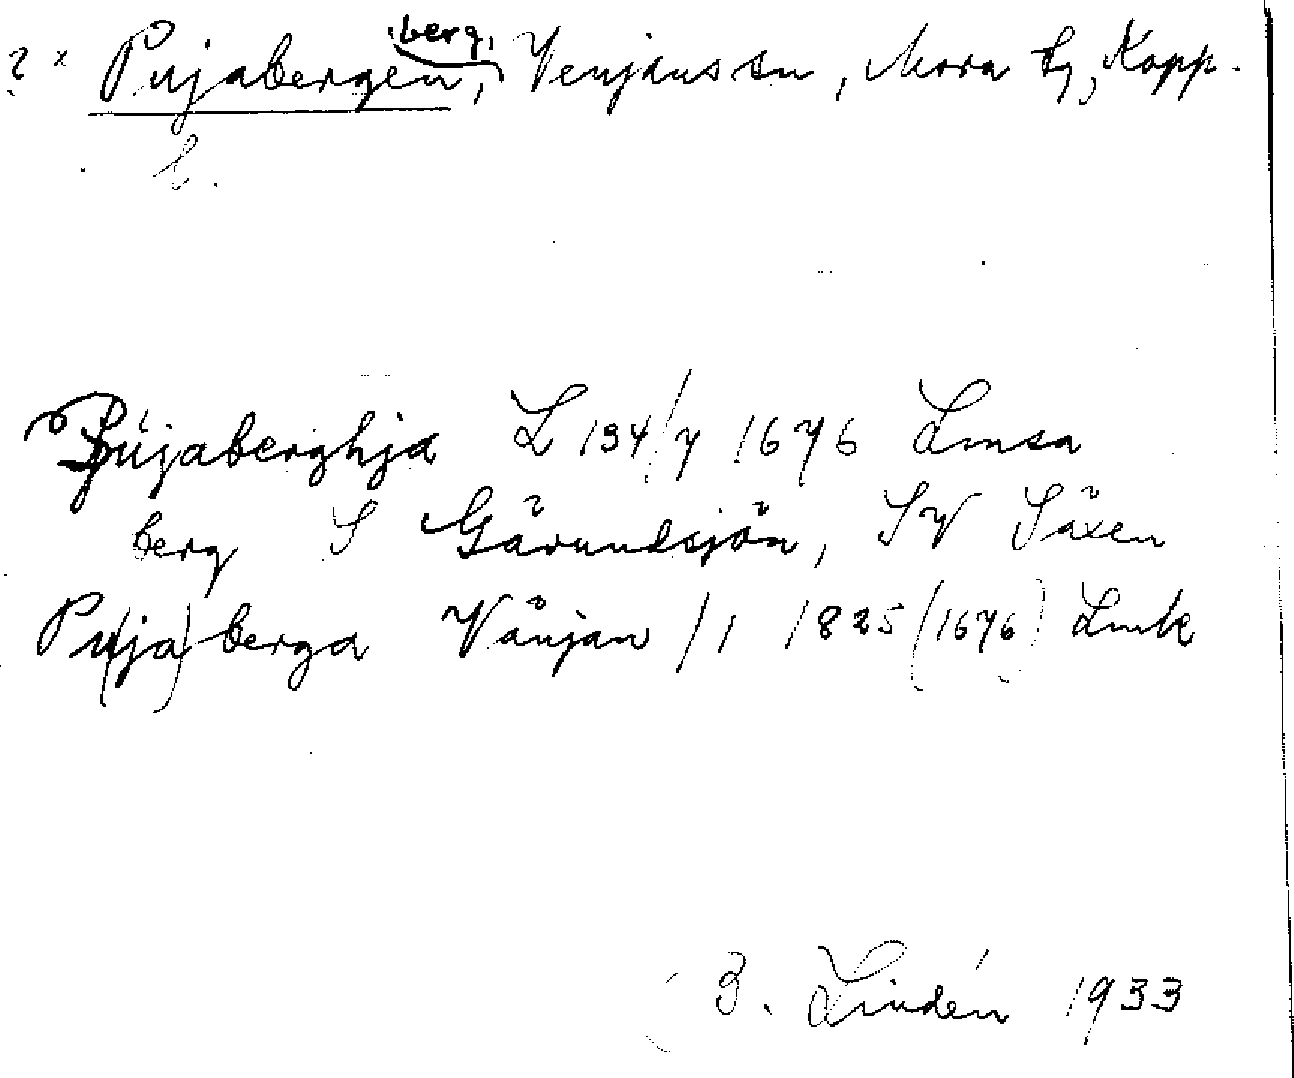 ? x Pujabergen, berg, Venjans sn, Mora tg, Kopp.
l.
Püjaberghja L 134/7 1676 Lmsa
berg S Gärundsjön, SV Säxen
Pu(ja)berga Vänjan /1 1825 (1676) Lmk
B. Lindén 1933